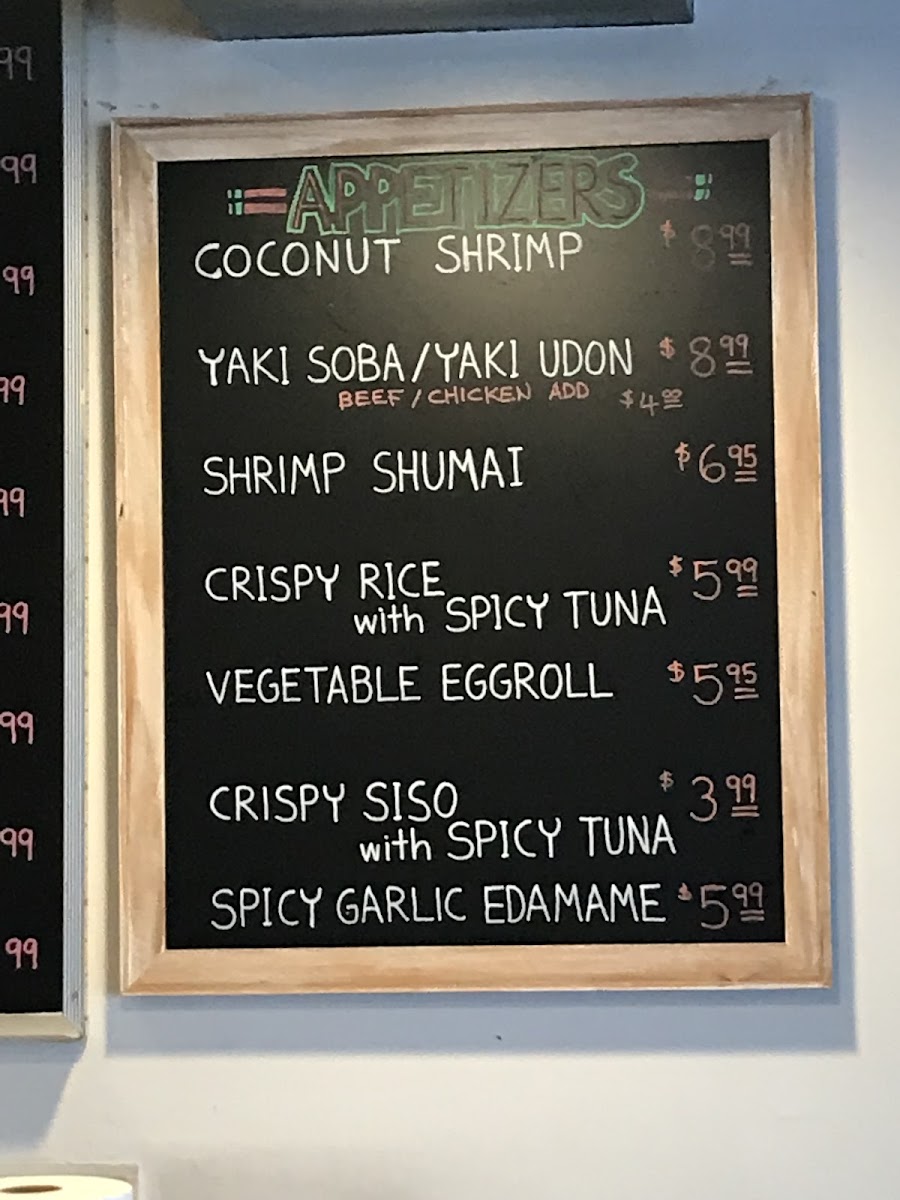 99
99
99
99
99
99
99
99
99
APPETIZERS
COCONUT SHRIMP $8.99
YAKI SOBA/YAKI UDON $8.99
BEEF/CHICKEN ADD $4.00
SHRIMP SHUMAI $6.95
CRISPY RICE $5.99
with SPICY TUNA
VEGETABLE EGGROLL $5.95
CRISPY SISO $3.99
with SPICY TUNA
SPICY GARLIC EDAMAME $5.99